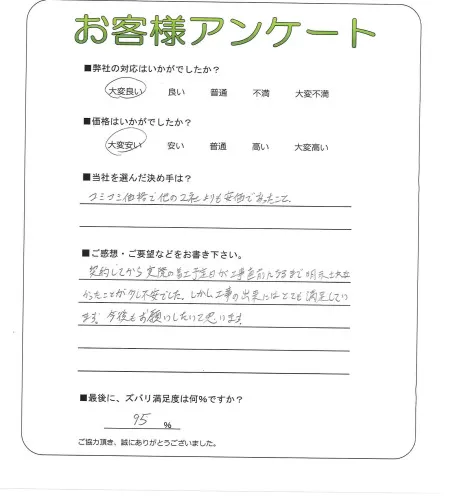 お客様アンケート
■弊社の対応はいかがでしたか？
大変良い 良い 普通 不満 大変不満
■価格はいかがでしたか？
大変安い 安い 普通 高い 大変高い
■当社を選んだ決め手は？
コミコミ価格で他の2社よりも安価であったこと、
■ご感想・ご要望などをお書き下さい。
契約してから実際の着工予定日が工事直前になるまで明示
かったことが少し不安でした。しかし工事の出来にはとても満足してい
ます。今後もお願いしたいと思います。
■最後に、ズバリ満足度は何％ですか？
95 ％
ご協力頂き、誠にありがとうございました。